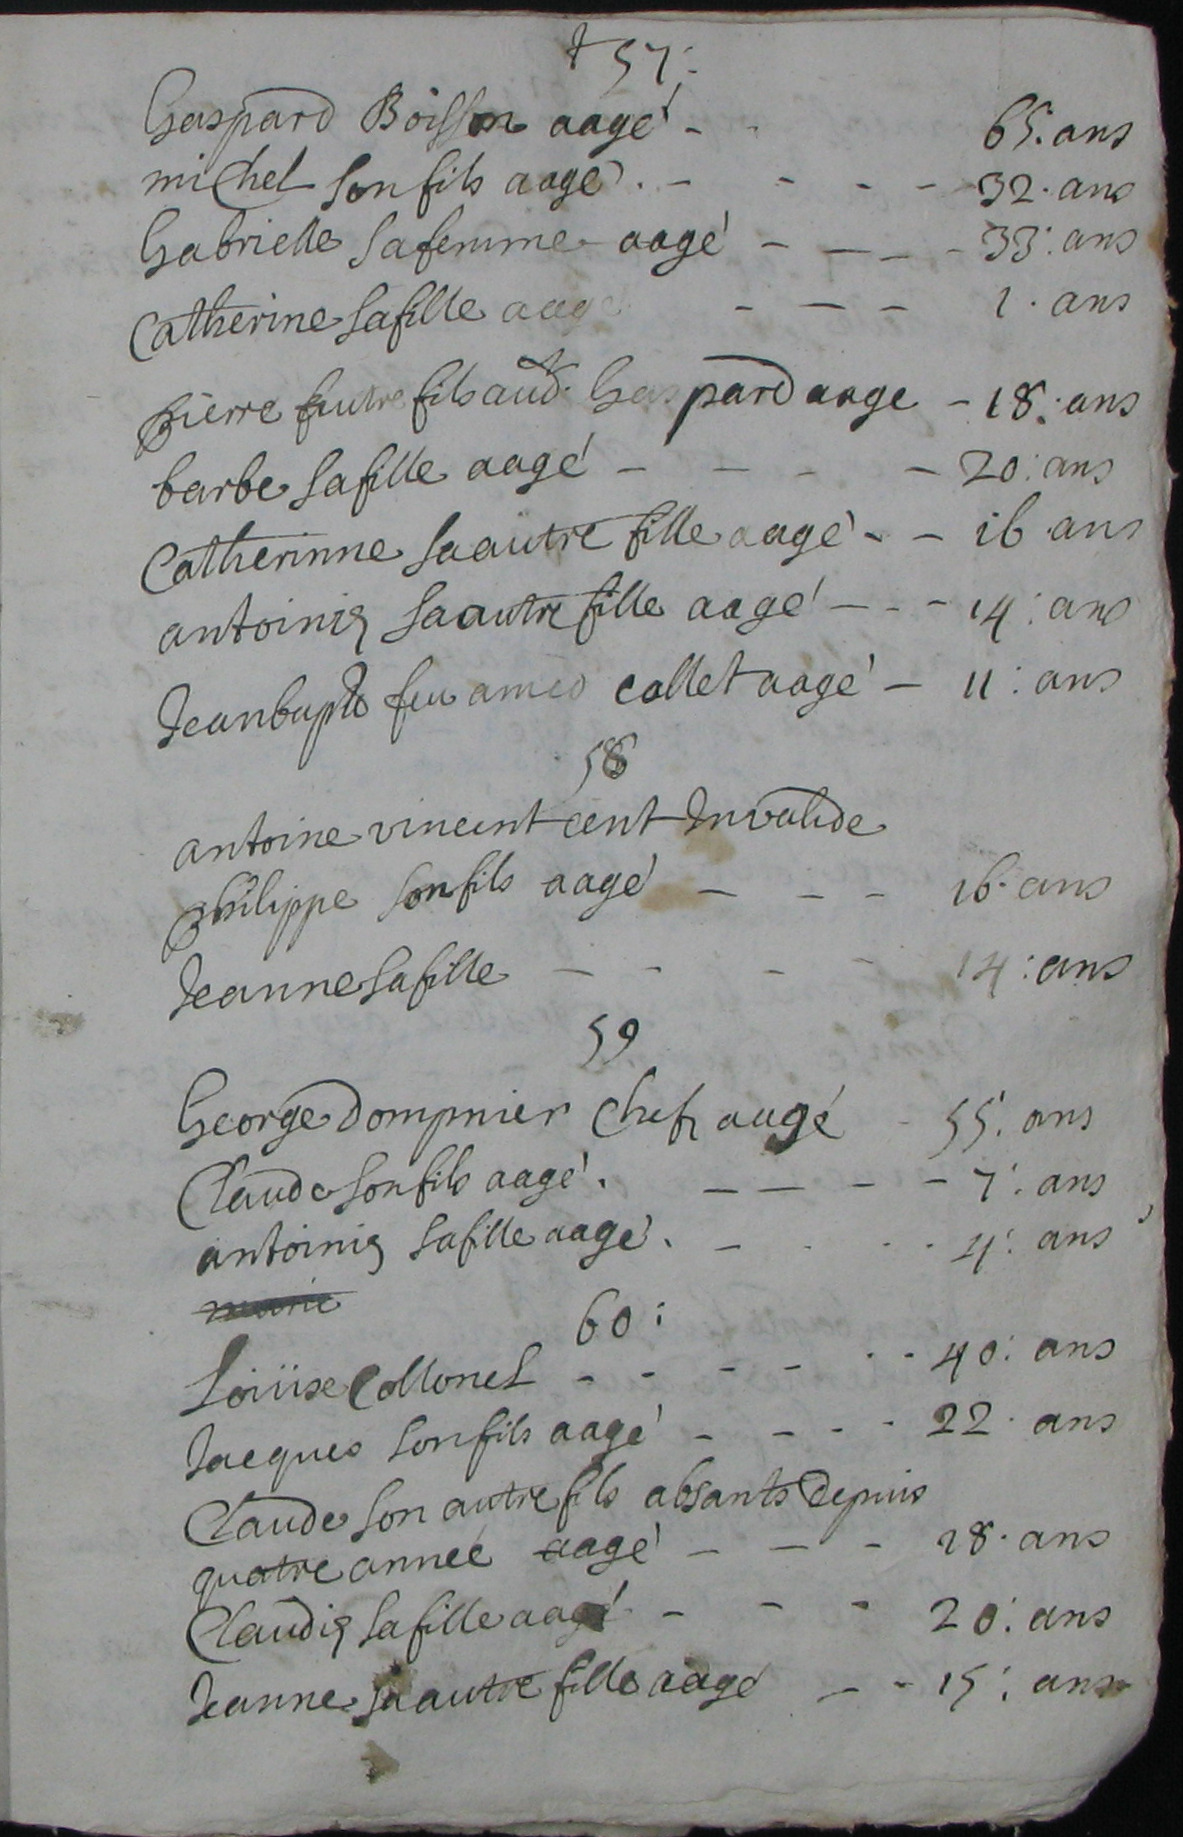 + 57:
Gaspard Boisson aagé - - 65. ans
michel son fils aagé. - - - - 32. ans
Gabrielle sa femme aagé - - - - 33: ans
Catherine sa fille aagé - - - 1. ans
pierre autre fils aud.t Gaspard aage - 18: ans
barbe sa fille aagé - - - - 20: ans
Catherinne sa autre fille aagé - - 16 ans
antoinie sa autre fille aagé - - - 14: ans
Jeanbapte feu amed collet aagé - 11: ans
58
antoine vincent Invalide
philippe son fils aagé - - - 16. ans
Jeanne sa fille - - - - 14: ans
59
George Dompnier Chef aagé - 55. ans
Claude son fils aagé. - - - - 7: ans
antoinie sa fille aagé. - - - - 4: ans
marie
60:
Loüise Collonel - - - - - - 40: ans
Jacques son fils aagé - - - - 22. ans
Claude son autre fils absants Depuis
quatre année aagé - - - 18. ans
Claudie sa fille aagé - - - 20: ans
Jeanne sa autre fille aagé - - 15: ans